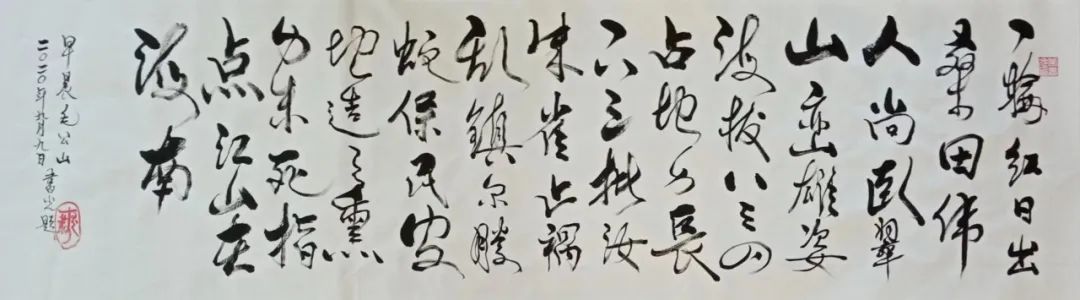 一輪红日出
桑田伟
人尚卧翠
山峦雄姿
海拔八三四
占地長
六三批汝
朱雀祸
乱鎮尔勝
蛇保民安
地造之
未死指
点江山在
海南
早晨毛公山
二〇二〇年九月九日書光题